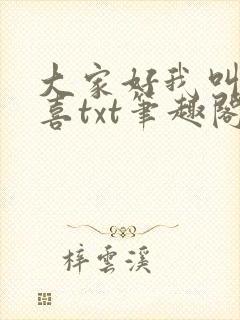 大家好我叫
喜txt笔趣阁
梓云溪